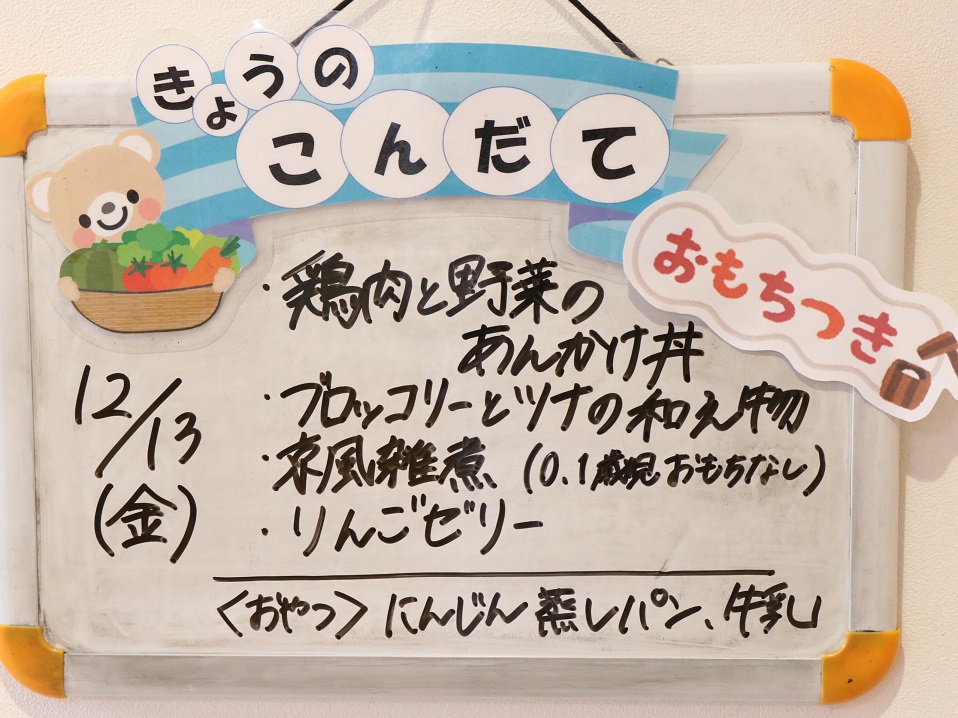 きょうの
こんだて
おもちつき
12/13
(金)
・鶏肉と野菜の
あんかけ丼
・ブロッコリーとツナの和え物
・京風雑煮 (0.1歳児おもちなし)
・りんごゼリー
<おやつ> にんじん蒸しパン、牛乳